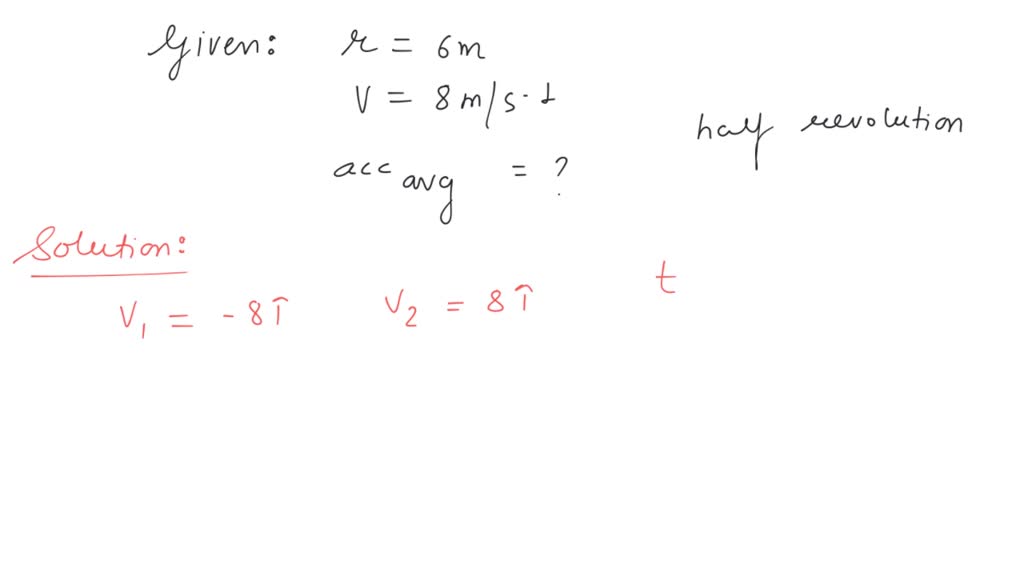 Given: r = 6m
V = 8 m/s.1
half revolution
acc avg = ?
Solution:
V1 = -8î V2 = 8î t